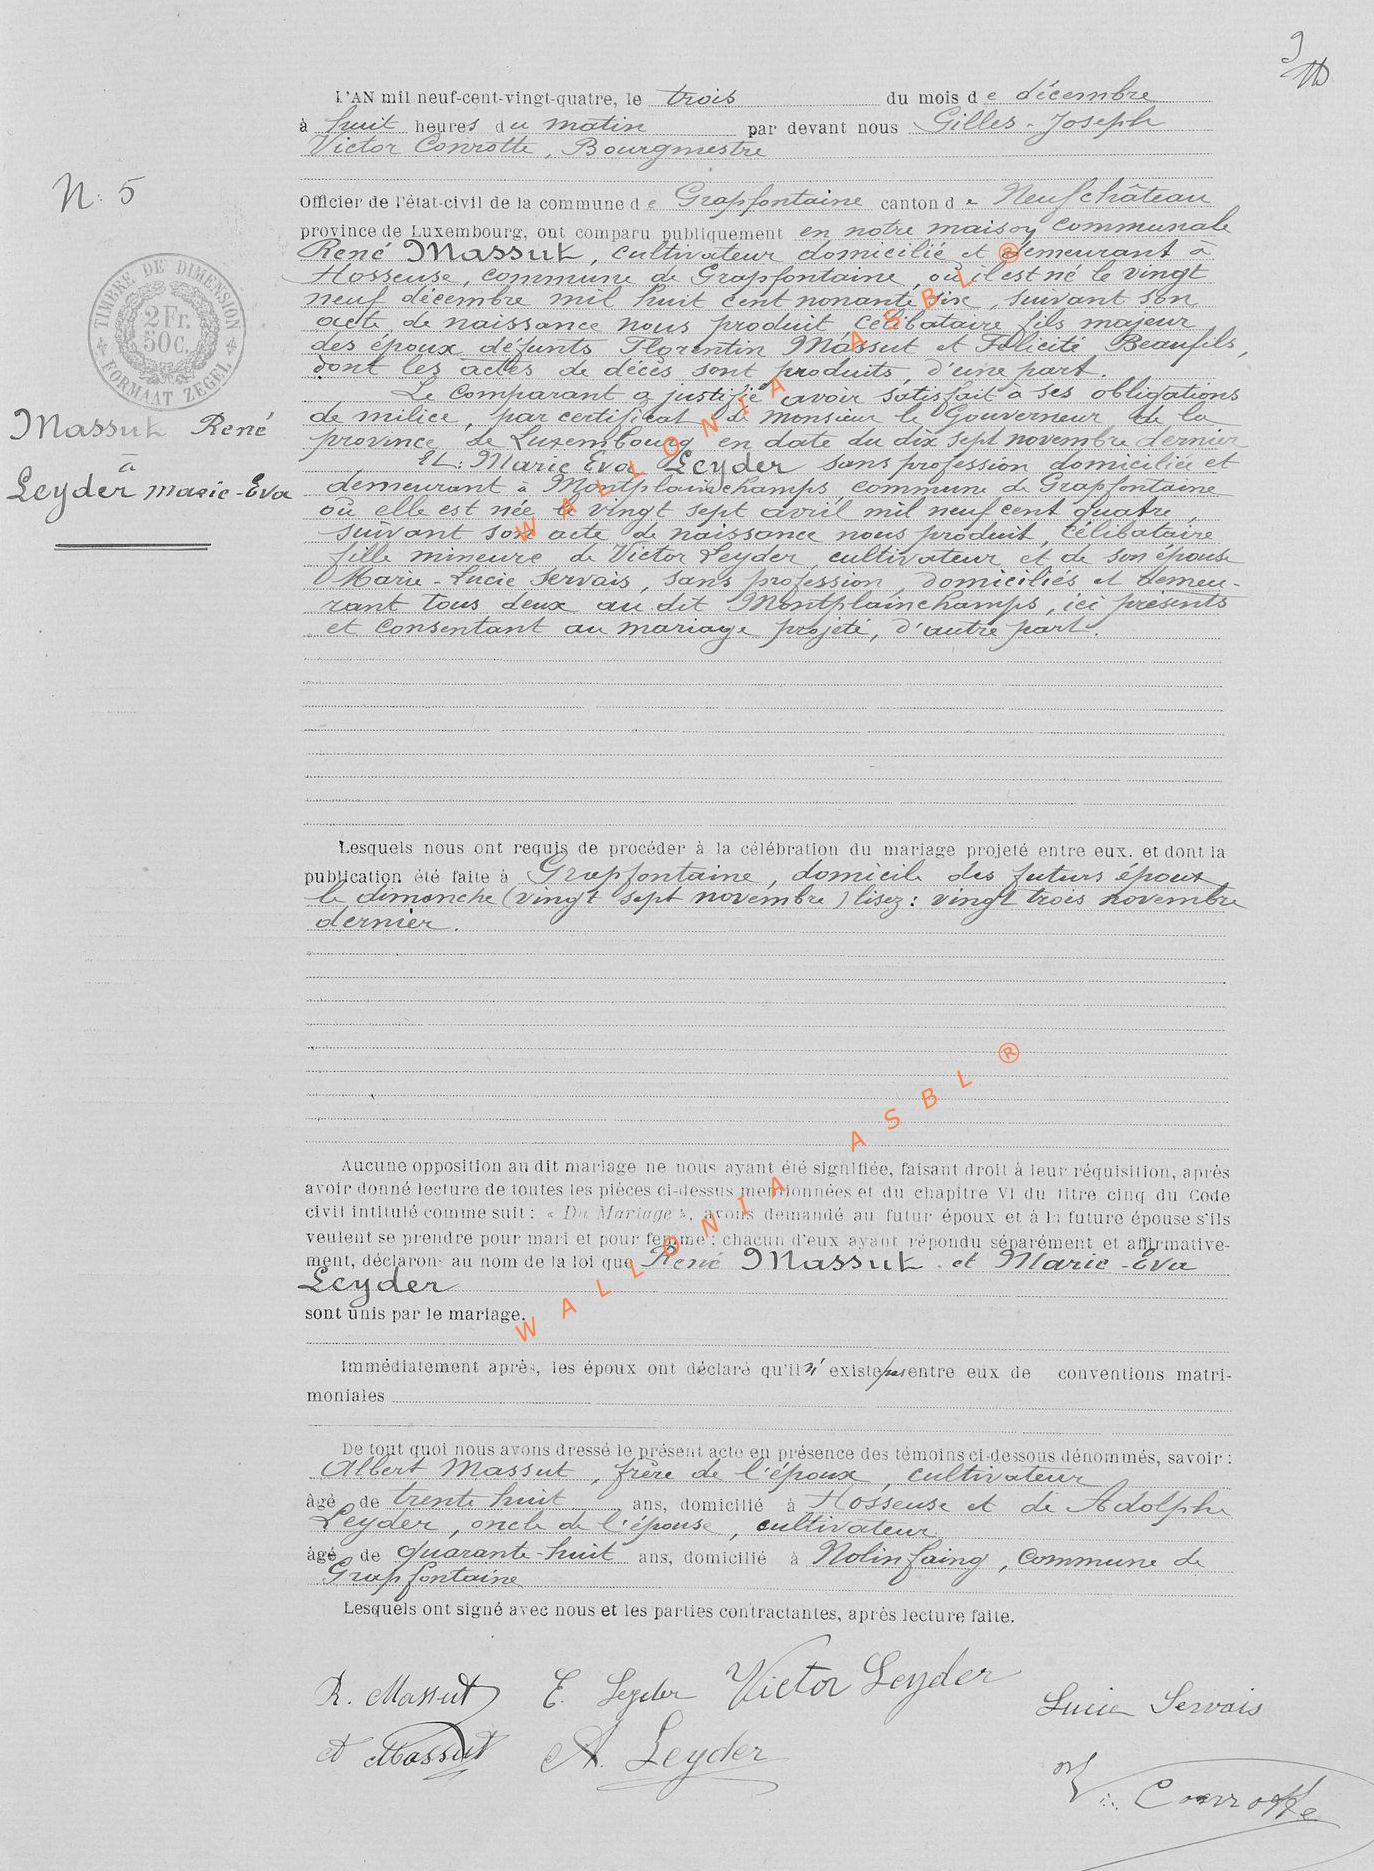 9
N. 5
L'AN mil neuf-cent-vingt-quatre, le trois du mois de décembre
à huit heures du matin par devant nous Gilles-Joseph
Victor Conrotte, Bourgmestre
Officier de l'état-civil de la commune de Grapfontaine canton de Neufchâteau
province de Luxembourg, ont comparu publiquement en notre maison communale
René Massut, cultivateur domicilié et demeurant à
Hosseuse, commune de Grapfontaine, où il est né le vingt
neuf décembre mil huit cent nonante six, suivant son
acte de naissance nous produit, célibataire fils majeur
des époux défunts Florentin Massut et Félicité Beaufils,
dont les actes de décès sont produits, d'une part.
Le comparant a justifié avoir satisfait à ses obligations
de milice, par certificat de Monsieur le Gouverneur de la
province de Luxembourg en date du dix sept novembre dernier
Et: Marie Eva Leyder sans profession domiciliée et
demeurant à Montplainchamps commune de Grapfontaine
où elle est née le vingt sept avril mil neuf cent quatre,
suivant son acte de naissance nous produit, célibataire
fille mineure de Victor Leyder, cultivateur et de son épouse
Marie-Lucie Servais, sans profession domiciliés et demeu-
rant tous deux au dit Montplainchamps, ici présents
et consentant au mariage projeté, d'autre part.
TIMBRE DE DIMENSION
2 Fr.
50 C.
FORMAAT ZEGEL
Massut René
à
Leyder Marie-Eva
Lesquels nous ont requis de procéder à la célébration du mariage projeté entre eux. et dont la
publication été faite à Grapfontaine, domicile des futurs époux
le dimanche (vingt sept novembre) lisez: vingt trois novembre
dernier.
Aucune opposition au dit mariage ne nous ayant été signifiée, faisant droit à leur réquisition, après
avoir donné lecture de toutes les pièces ci-dessus mentionnées et du chapitre VI du titre cinq du Code
civil intitulé comme suit: « Du Mariage », avons demandé au futur époux et à la future épouse s'ils
veulent se prendre pour mari et pour femme: chacun d'eux ayant répondu séparément et affirmative-
ment, déclarons au nom de la loi que René Massut et Marie-Eva
Leyder
sont unis par le mariage.
Immédiatement après, les époux ont déclaré qu'il n'existe pas entre eux de conventions matri-
moniales
De tout quoi nous avons dressé le présent acte en présence des témoins ci-dessous dénommés, savoir:
Albert Massut, frère de l'époux, cultivateur
âgé de trente huit ans, domicilié à Hosseuse et de Adolphe
Leyder, oncle de l'épouse, cultivateur
âgé de quarante-huit ans, domicilié à Nolinfaing, commune de
Grapfontaine
Lesquels ont signé avec nous et les parties contractantes, après lecture faite.
R. Massut E. Leyder Victor Leyder Lucie Servais
A Massut A. Leyder
V. Conrotte
WALLONIA ASBL ®
WALLONIA ASBL ®